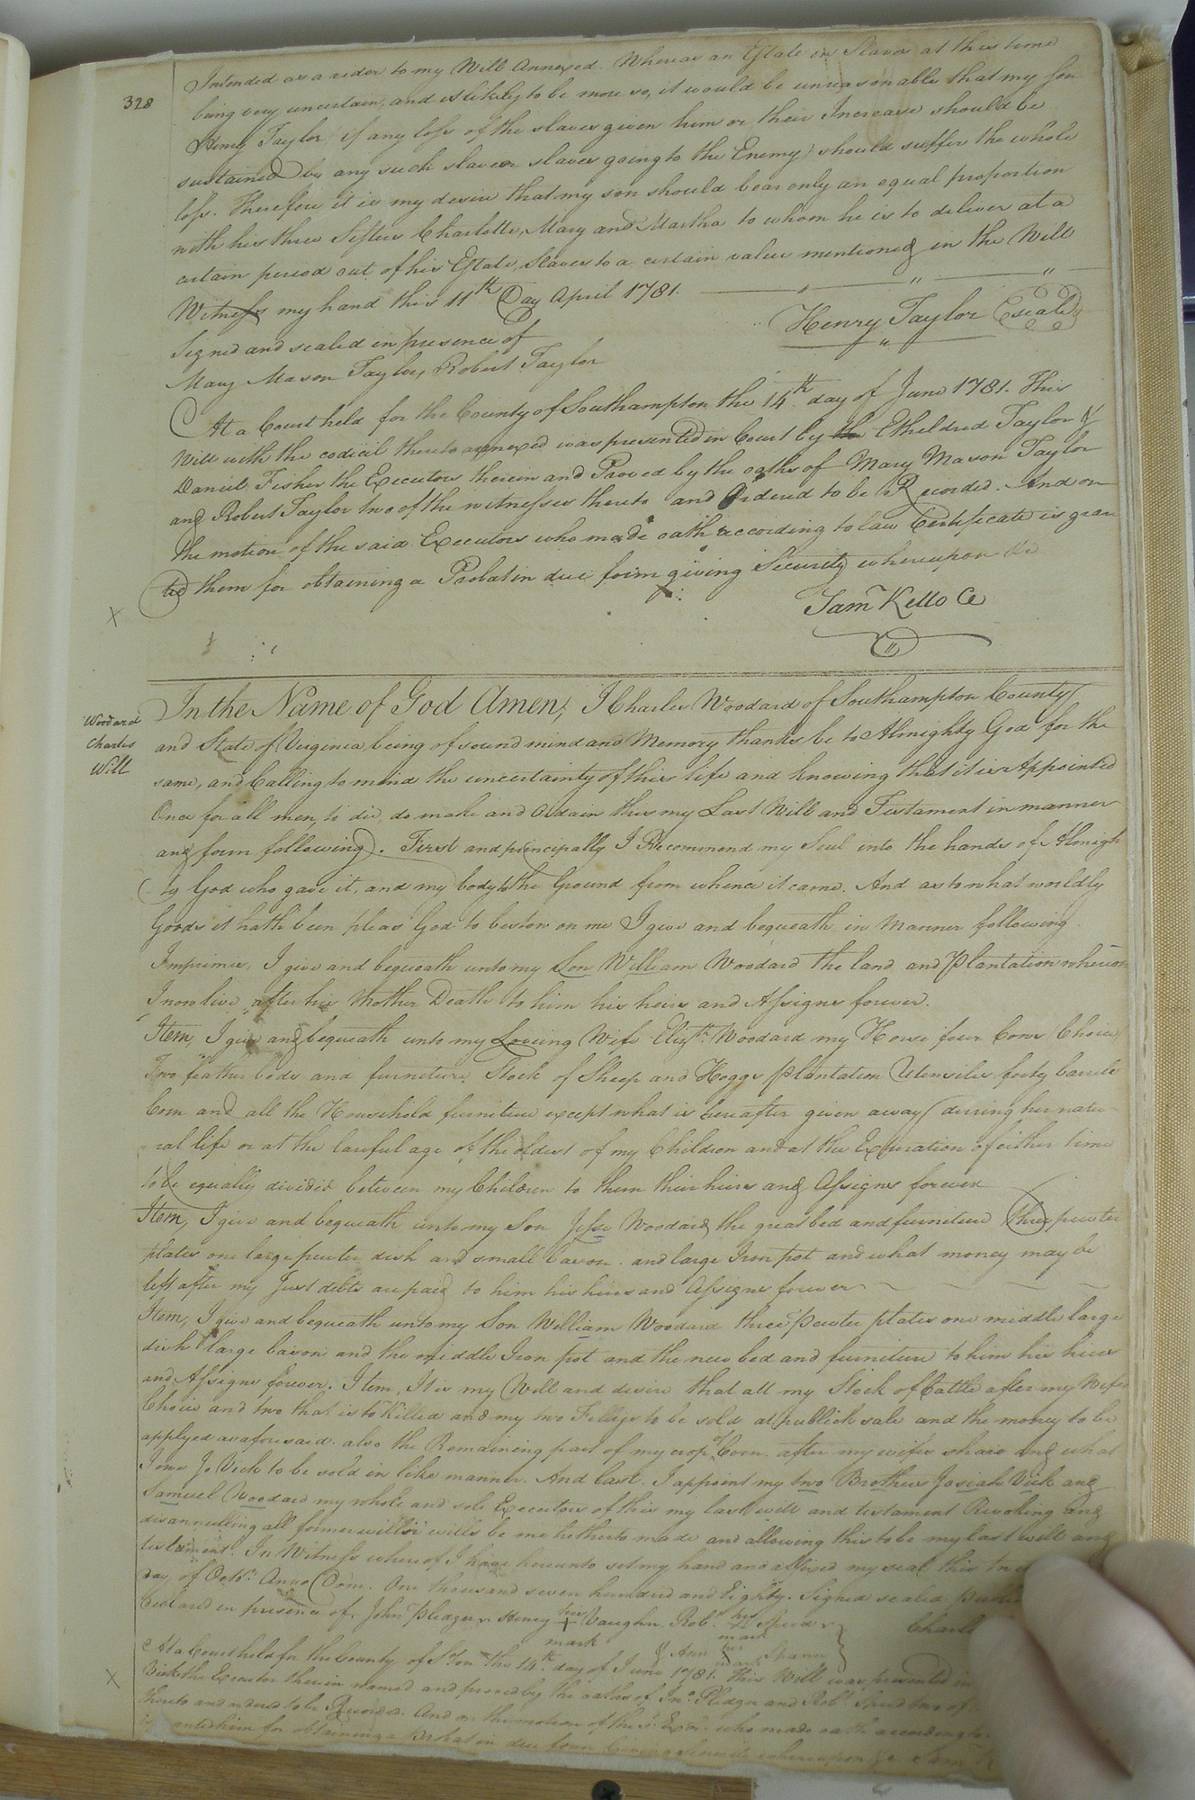 328
Intended as a rider to my Will Annexed. Whereas an Estate in Slaves at this time
being very uncertain, and is likely to be more so, it would be unreasonable that my son
Henry Taylor if any loss of the slaves given him or their Increase should be
sustained by any such slave or slaves going to the Enemy should suffer the whole
loss. Therefore it is my desire that my son should bear only an equal proportion
with his three Sisters Charlotte, Mary and Martha to whom he is to deliver at a
certain period out of his Estate, Slaves to a certain value mentioned in the Will
Witness my hand this 11th Day April 1781.
Henry Taylor (seal)
Signed and sealed in presence of
Mary Mason Taylor, Robert Taylor
At a Court held for the County of Southampton the 14th day of June 1781. This
Will with the codicil thereto annexed was presented in Court by the Etheldred Taylor &
Daniel Fisher the Executors therein and Proved by the oaths of Mary Mason Taylor
and Robert Taylor two of the witnesses thereto and Ordered to be Recorded. And on
the motion of the said Executors who made oath according to law Certificate is gran
ted them for obtaining a Probat in due form giving Security whereupon &c
Samˡ Kello Ce
Woodard
Charles
Will
In the Name of God Amen, I Charles Woodard of Southampton County
and State of Virginia being of sound mind and Memory thanks be to Almighty God for the
same, and Calling to mind the uncertainty of this life and knowing that it is Appointed
Once for all men, to die, do make and Ordain this my Last Will and Testament in manner
and form following. First and principally I Recommend my Soul into the hands of Almigh
ty God who gave it, and my body to the Ground from whence it came. And as to what worldly
Goods it hath been pleas God to bestow on me I give and bequeath in Manner following
Imprimis, I give and bequeath unto my Son William Woodard the land and Plantation whereon
I now live after his Mother Death to him his heirs and Assigns forever.
Item, I give and bequeath unto my Loveing Wife Elizth. Woodard my Horse four Cows Choice
Two feather beds and furniture, Stock of Sheep and Hoggs plantation Utensils forty barrels
Corn and all the Household furniture except what is hereafter given away during her natu
ral life or at the lawful age of the oldest of my Children and at the Expiration of either time
to be equally divided between my Children to them their heirs and Assigns forever
Item, I give and bequeath unto my Son Jesse Woodard the great bed and furniture three pewter
plates one large pewter dish and small bason and large Iron pot and what money may be
left after my Just debts are paid to him his heirs and Assigns forever
Item, I give and bequeath unto my Son William Woodard three Pewter plates one middle large
dish large bason and the middle Iron pot and the new bed and furniture to him his heirs
and Assigns forever. Item, It is my Will and desire that all my Stock of Cattle after my Wifes
Choice and two that is to Killed and my two to be sold at publick sale and the money to be
applyed as aforesaid. also the Remaining part of my crop of Corn after my wifes share and what
I owe Jo Vick to be sold in like manner. And last I appoint my two Brothers Josiah Vick and
Samuel Woodard my whole and sole Executors of this my last will and testament Revoking and
disannulling all former will or wills be me hetherto made and allowing this to be my last will and
testament. In Witness whereof I have hereunto set my hand and affixed my seal this
day of Octr. Anno Dom. One thousand seven hundred and Eighty. Signed sealed
Declared in presence of John Pledger Henry his mark Vaughn Robt. his mark Speed
& Ann her mark
Charle
At a Court held for the County of Soton the 14th. day of June 1781. This Will was presented in
Vick the Executor therein named and proved by the oaths of Jno. Pledger and Robt. Speed two of
thereto and ordered to be Recorded. And on the motion of the sd. Exor. who made oath according to
him for obtaining a Probat in due form Giving Security whereupon &c